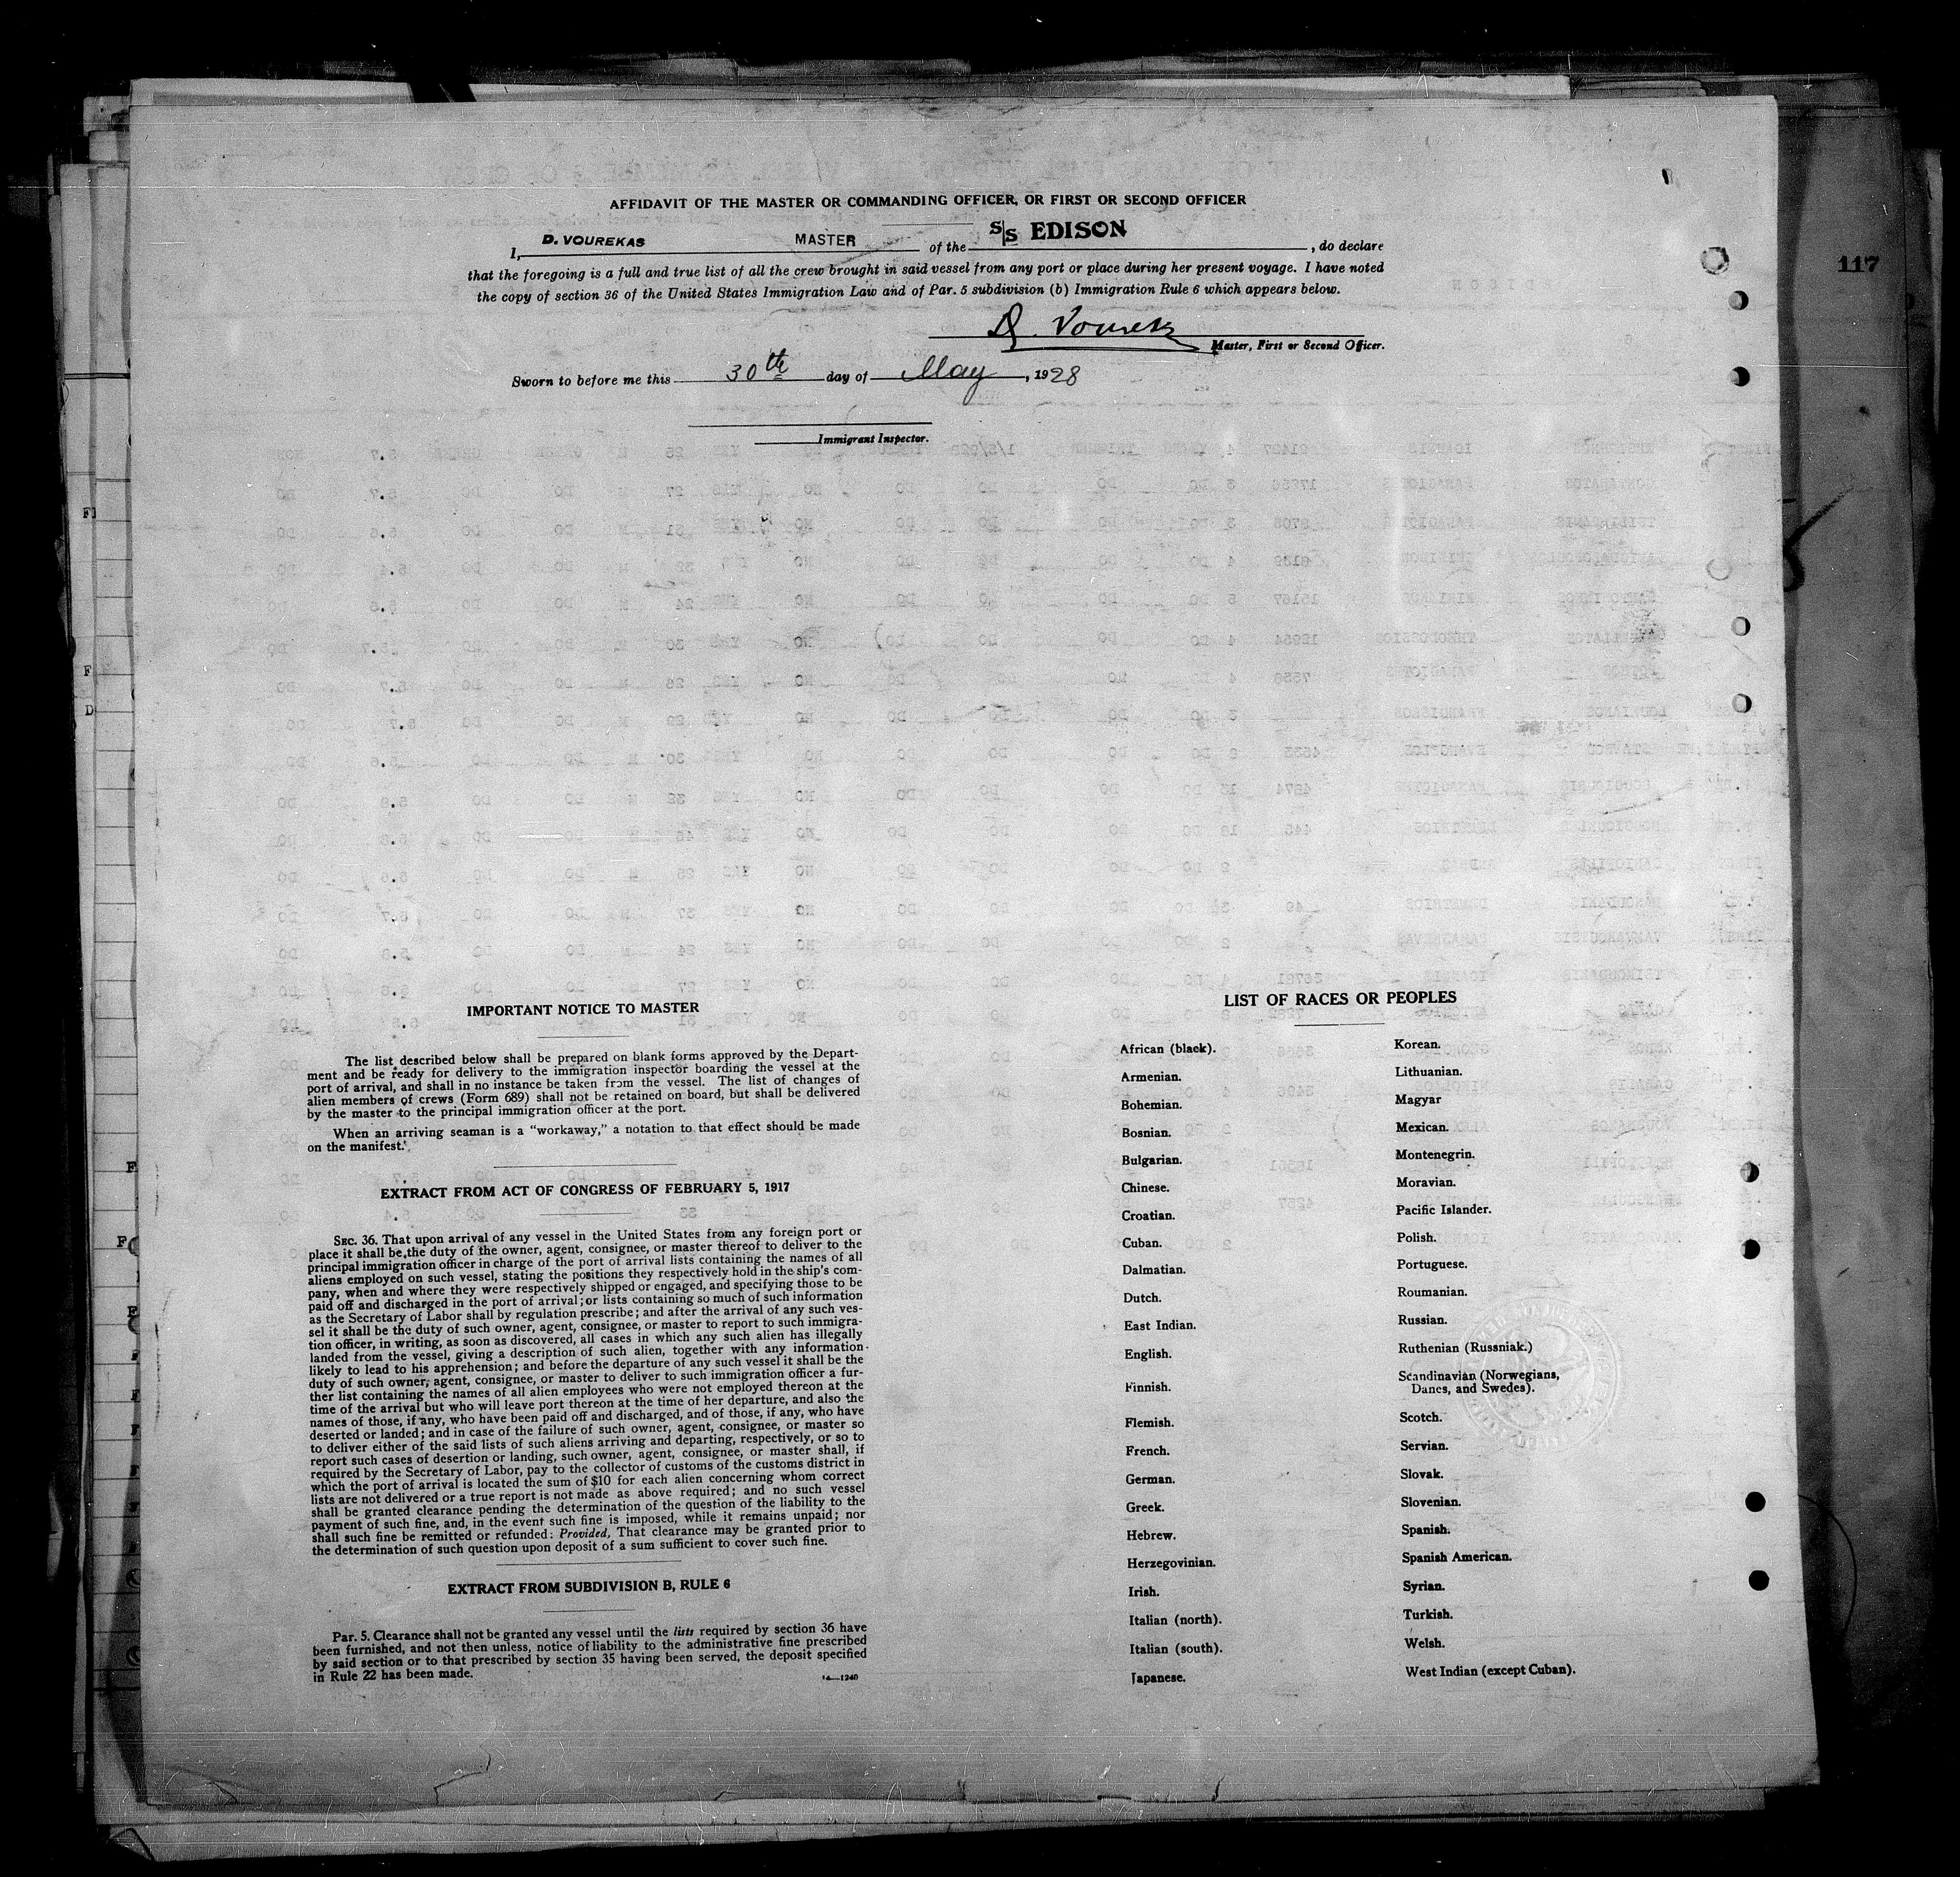 AFFIDAVIT OF THE MASTER OR COMMANDING OFFICER, OR FIRST OR SECOND OFFICER
I, D. VOUREKAS MASTER of the S/S EDISON, do declare
that the foregoing is a full and true list of all the crew brought in said vessel from any port or place during her present voyage. I have noted
the copy of section 36 of the United States Immigration Law and of Par. 5 subdivision (b) Immigration Rule 6 which appears below.
Master, First or Second Officer.
Sworn to before me this 30th day of May, 1928
Immigrant Inspector.
117
IMPORTANT NOTICE TO MASTER
The list described below shall be prepared on blank forms approved by the Depart-
ment and be ready for delivery to the immigration inspector boarding the vessel at the
port of arrival, and shall in no instance be taken from the vessel. The list of changes of
alien members of crews (Form 689) shall not be retained on board, but shall be delivered
by the master to the principal immigration officer at the port.
When an arriving seaman is a “workaway,” a notation to that effect should be made
on the manifest.
EXTRACT FROM ACT OF CONGRESS OF FEBRUARY 5, 1917
SEC. 36. That upon arrival of any vessel in the United States from any foreign port or
place it shall be the duty of the owner, agent, consignee, or master thereof to deliver to the
principal immigration officer in charge of the port of arrival lists containing the names of all
aliens employed on such vessel, stating the positions they respectively hold in the ship's com-
pany, when and where they were respectively shipped or engaged, and specifying those to be
paid off and discharged in the port of arrival; or lists containing so much of such information
as the Secretary of Labor shall by regulation prescribe; and after the arrival of any such ves-
sel it shall be the duty of such owner, agent, consignee, or master to report to such immigra-
tion officer, in writing, as soon as discovered, all cases in which any such alien has illegally
landed from the vessel, giving a description of such alien, together with any information
likely to lead to his apprehension; and before the departure of any such vessel it shall be the
duty of such owner, agent, consignee, or master to deliver to such immigration officer a fur-
ther list containing the names of all alien employees who were not employed thereon at the
time of the arrival but who will leave port thereon at the time of her departure, and also the
names of those, if any, who have been paid off and discharged, and of those, if any, who have
deserted or landed; and in case of the failure of such owner, agent, consignee, or master so
to deliver either of the said lists of such aliens arriving and departing, respectively, or so to
report such cases of desertion or landing, such owner, agent, consignee, or master shall, if
required by the Secretary of Labor, pay to the collector of customs of the customs district in
which the port of arrival is located the sum of $10 for each alien concerning whom correct
lists are not delivered or a true report is not made as above required; and no such vessel
shall be granted clearance pending the determination of the question of the liability to the
payment of such fine, and, in the event such fine is imposed, while it remains unpaid; nor
shall such fine be remitted or refunded: Provided, That clearance may be granted prior to
the determination of such question upon deposit of a sum sufficient to cover such fine.
EXTRACT FROM SUBDIVISION B, RULE 6
Par. 5. Clearance shall not be granted any vessel until the lists required by section 36 have
been furnished, and not then unless, notice of liability to the administrative fine prescribed
by said section or to that prescribed by section 35 having been served, the deposit specified
in Rule 22 has been made.
14—1240
LIST OF RACES OR PEOPLES
African (black).
Armenian.
Bohemian.
Bosnian.
Bulgarian.
Chinese.
Croatian.
Cuban.
Dalmatian.
Dutch.
East Indian.
English.
Finnish.
Flemish.
French.
German.
Greek.
Hebrew.
Herzegovinian.
Irish.
Italian (north).
Italian (south).
Japanese.
Korean.
Lithuanian.
Magyar
Mexican.
Montenegrin.
Moravian.
Pacific Islander.
Polish.
Portuguese.
Roumanian.
Russian.
Ruthenian (Russniak.)
Scandinavian (Norwegians,
Danes, and Swedes).
Scotch.
Servian.
Slovak.
Slovenian.
Spanish.
Spanish American.
Syrian.
Turkish.
Welsh.
West Indian (except Cuban).